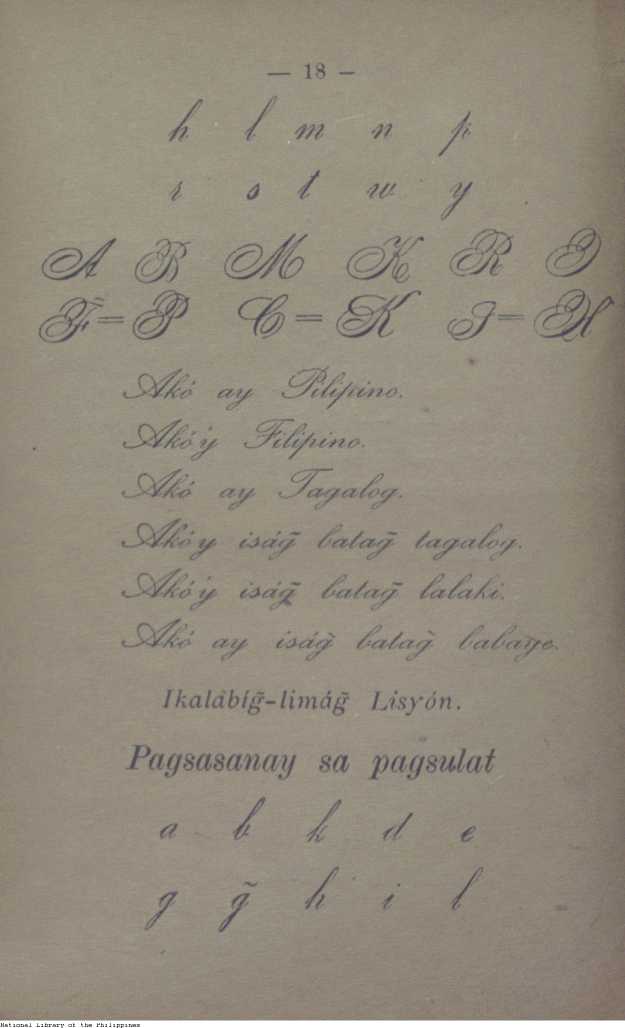 — 18 —
h l m n p
r s t w y
A B M K R I
F̃ = P C = K J = H
Akó ay Pilipino.
Akó'y Filipino.
Akó ay Tagalog.
Akóy iság̃ batag̃ tagalog.
Akó'y iság̃ batag̃ lalaki.
Akó ay iság̃ batag̃ babaye.
Ikalábíg̃-limág̃ Lisyón.
Pagsasanay sa pagsulat
a b k d e
g g̃ h i l
National Library of the Philippines